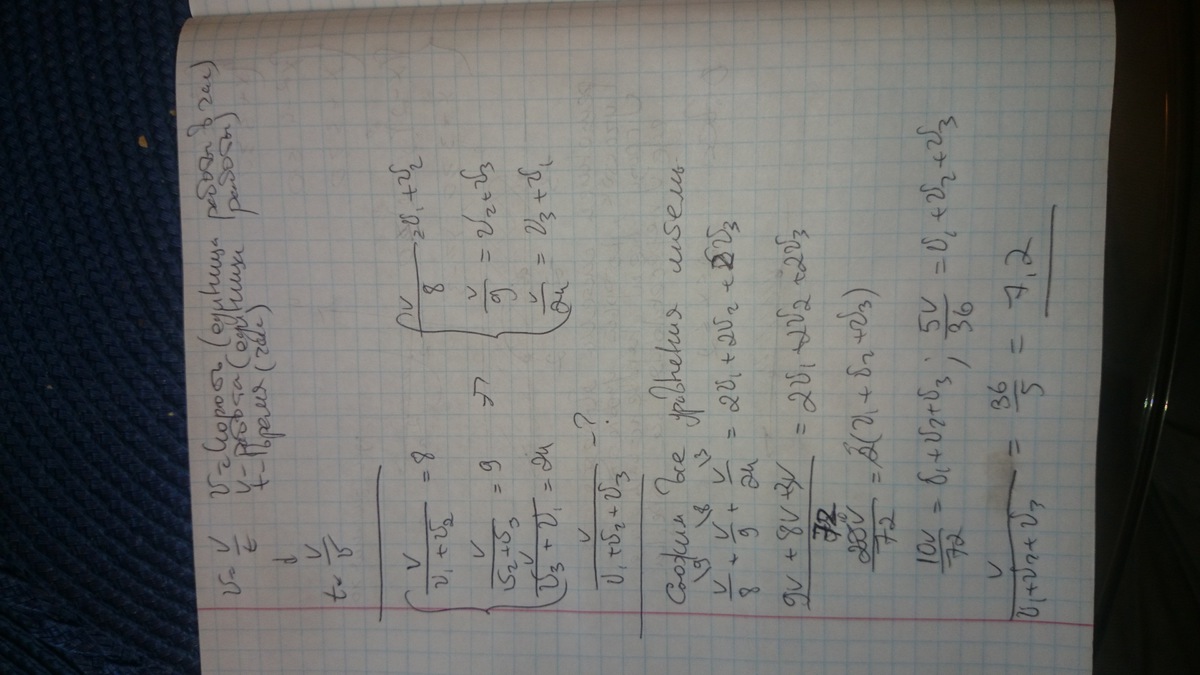 v = V/t    v - скорость (единица работы в час)
V - работа (единицы работы)
↓    t - время (час)
t = V/v
{ V/(v₁+v₂) = 8    { V/8 = v₁+v₂
V/(v₂+v₃) = 9    =>    V/9 = v₂+v₃
V/(v₃+v₁) = 24    V/24 = v₃+v₁
V/(v₁+v₂+v₃) - ?
Сложим все уравнения
V/8 \9 + V/9 \8 + V/24 \3 = 2v₁+2v₂+2v₃
(9V+8V+3V)/72 = 2v₁+2v₂+2v₃
20V/72 = 2(v₁+v₂+v₃)
10V/72 = v₁+v₂+v₃ ; 5V/36 = v₁+v₂+v₃
V/(v₁+v₂+v₃) = 36/5 = 7,2